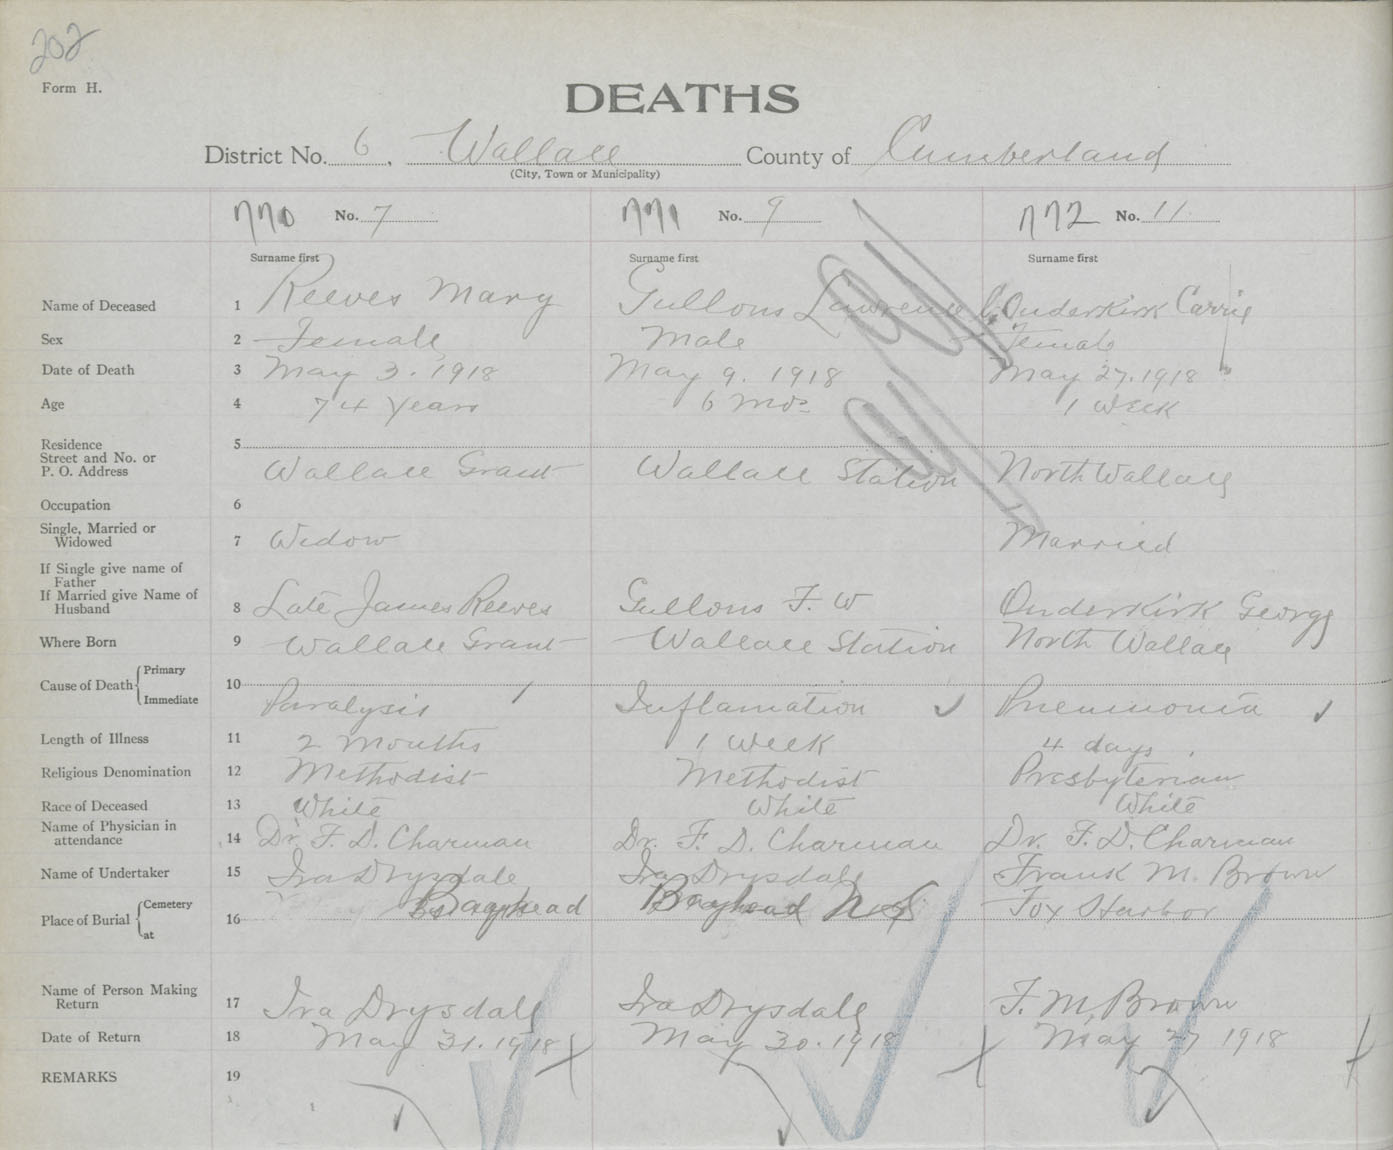 202
Form H.
DEATHS
District No. 6, Wallace County of Cumberland
(City, Town or Municipality)
770 No. 7 771 No. 9 772 No. 11
Surname first Surname first Surname first
Name of Deceased 1 Reeves Mary Gullons Lawrence C. Ouderkirk Carrie
Sex 2 Female Male Female
Date of Death 3 May 3. 1918 May 9. 1918 May 27. 1918
Age 4 74 years 6 mos 1 week
Residence 5
Street and No. or
P. O. Address Wallace Grant Wallace Station North Wallace
Occupation 6
Single, Married or
Widowed 7 Widow Married
If Single give name of
Father
If Married give Name of
Husband 8 Late James Reeves Gullons F. W Ouderkirk George
Where Born 9 Wallace Grant Wallace Station North Wallace
Cause of Death Primary 10
Immediate Paralysis Inflamation Pneumonia
Length of Illness 11 2 months 1 week 4 days
Religious Denomination 12 Methodist Methodist Presbyterian
Race of Deceased 13 White White White
Name of Physician in
attendance 14 Dr. F. D. Charman Dr. F. D. Charman Dr. F. D. Charman
Name of Undertaker 15 Ira Drysdale Ira Drysdale Frank M. Brown
Place of Burial Cemetery 16 Brayhead Brayhead N.S Fox Harbor
at
Name of Person Making
Return 17 Ira Drysdale Ira Drysdale F. M. Brown
Date of Return 18 May 31. 1918 May 30. 1918 May 27 1918
REMARKS 19